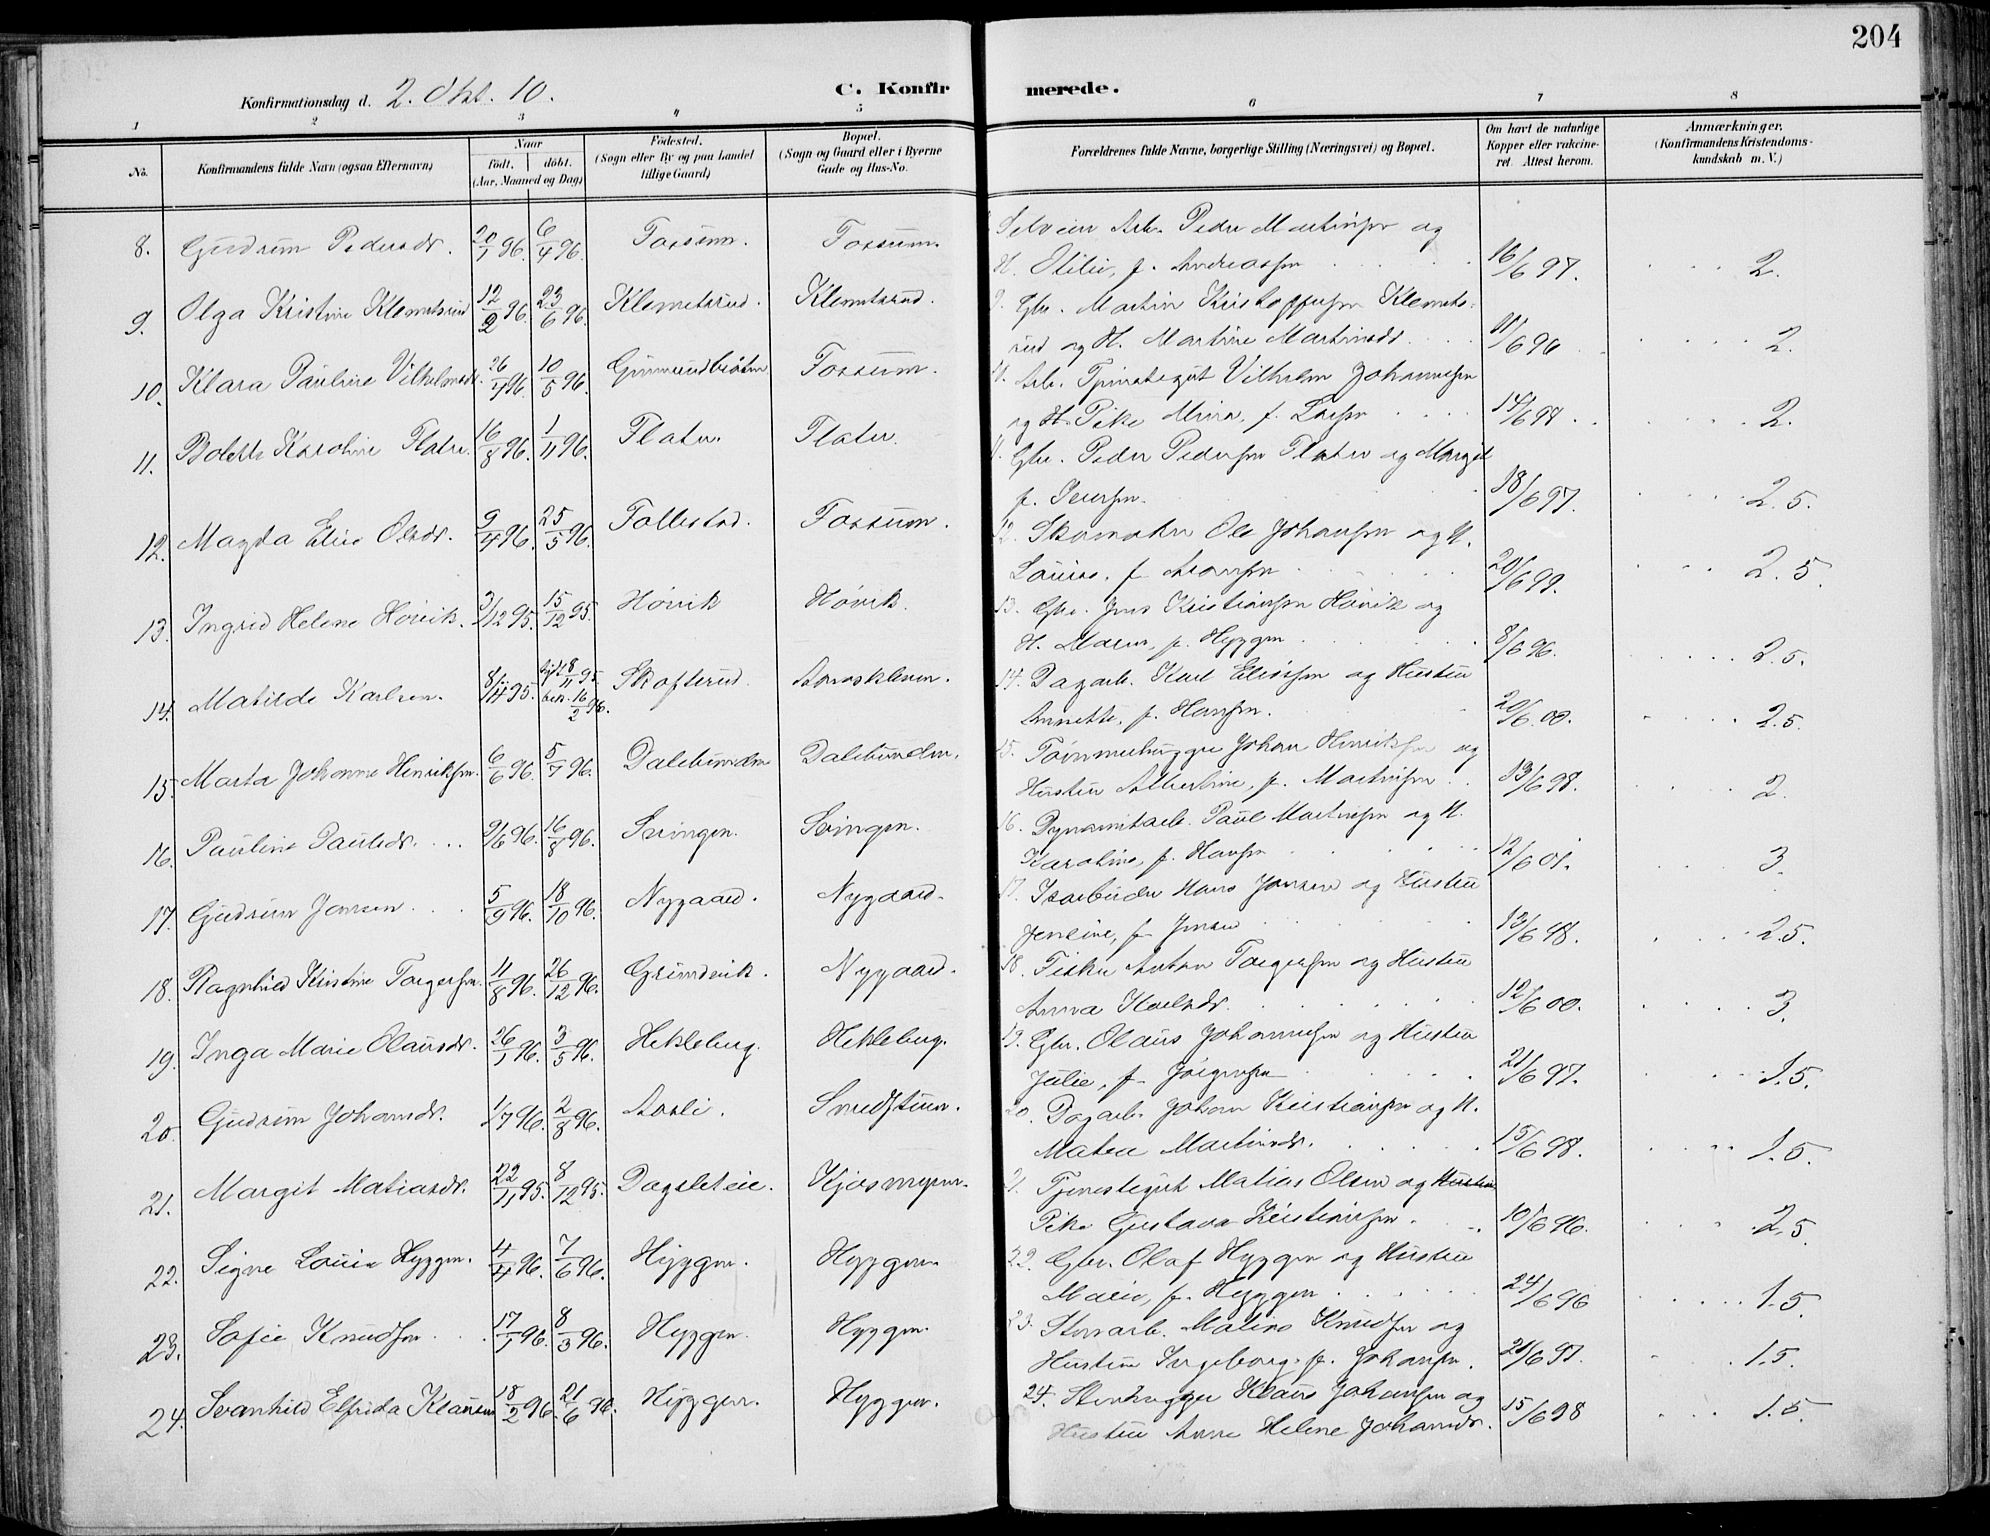 204
Konfirmationsdag d. 2. Okt. 10.
C. Konfirmerede.
1 2 3 4 5 6 7 8
No.
Konfirmandens fulde Navn (ogsaa Efternavn)
Naar
födt. döbt.
(Aar, Maaned og Dag)
Födested.
(Sogn eller By og paa Landet
tillige Gaard)
Bopæl.
(Sogn og Gaard eller i Byerne
Gade og Hus-No.
Forældrenes fulde Navne, borgerlige Stilling (Næringsvei) og Bopæl.
Om havt de naturlige
Kopper eller vakcine-
ret. Attest herom.
Anmærkninger.
(Konfirmandens Kristendoms-
kundskab m. V.)
8. Gudrun Pedersdr. 20/1 96. 6/4 96. Fossum. Fossum. Selveier Arb. Peder Martinsen og
H. Otilie, f. Andreassen 16/6 97. 2.
9. Olga Kristine Klemetsrud 12/2 96. 23/6 96. Klemetsrud. Klemetsrud. 9. Gbr. Martin Kristoffersen Klemets-
rud og H. Martine Martinsdr. 11/6 96 2.
10. Klara Pauline Vilhelmsdr. 26/4 96. 10/5 96. Fossum. Arb. Tjenestegut Vilhelm Johannesen
og Pike Mina, f. Larsen 14/6 98 2.
11. Bolette Karoline Flater. 16/8 96. 1/11 96. Flater. Flater. 11. Gbr. Peder Pedersen Flater og Margit
f. Iversen. 18/6 97. 2.5.
12. Magda Elise Olsdr. 9/4 96. 25/5 96. Tollestad. Fossum. 12. Skomaker Ole Johansen og H.
Louise, f. Aronsen 20/6 99. 2.5.
13. Ingrid Helene Hövik. 3/12 95. 15/12 95. Hövik Hövik. 13. Gbr. Jens Kristiansen Hövik og
H. Maren, f. Hyggen 8/6 96. 2.5.
14. Matilde Karlsen. 8/4 95. 8/11 95. bek. 16/2 96. Skofterud. Aaroskleven. 14. Dagarb. Karl Eliassen og Hustru
Annette, f. Hansen. 20/6 00. 2.5.
15. Marta Johanne Henriksen. 6/6 96. 5/7 96. Dalebunden Dalebunden. 15. Tömmerhugger Johan Henriksen og
Hustru Albertine, f. Martinsen 13/6 98. 2.
16. Pauline Paulsdr. 9/6 96. 16/8 96. Svingen. Svingen. 16. Dynamitarb. Paul Martinsen og H.
Karoline, f. Hansen 12/6 01. 3.
17. Gudrun Jansen 5/9 96. 18/10 96. Nygaard. Nygaard. 17. Isarbeider Hans Jansen og Hustru
Jensine, f. Jensen 13/6 98. 2.5.
18. Ragnhild Kristine Torgersen. 11/8 96. 26/12 96. Grimsvik. Nygaard. 18. Fisker Anton Torgersen og Hustru
Anna Karlsdr. 12/6 00. 3.
19. Inga Marie Olausdr. 26/1 96. 3/5 96. Hekleberg. Hekleberg. 19. Gbr. Olaus Johannesen og Hustru
Julie, f. Jörgensen 21/6 97. 1.5.
20. Gudrun Johansdr. 1/7 96. 2/8 96. Aasli. Smedstuen. 20. Dagarb. Johan Kristiansen og H.
Matea Martinsdr. 15/6 98. 1.5.
21. Margit Matiasdr. 22/11 95. 8/12 95. Dagsleteie. Kjosmyren. 21. Tjenestegut Matias Olsen og Hustru
Pike Gustava Kristiansen. 10/6 96. 2.5
22. Signe Louise Hyggen. 4/4 96. 7/6 96. Hyggen. Hyggen. 22. Gbr. Olaf Hyggen og Hustru
Marie, f. Hyggen 24/6 96 1.5
23. Sofie Knudsen 17/1 96. 8/3 96. Hyggen. Hyggen. 23. Stenarb. Matias Knudsen og
Hustru Ingeborg f. Johansen. 21/6 97. 1.5.
24. Svanhild Elfrida Klausen 18/2 96. 21/6 96. Hyggen. Hyggen. 24. Stenhugger Klaus Johansen og
Hustru Anne Helene Johansdr. 15/6 98 1.5.